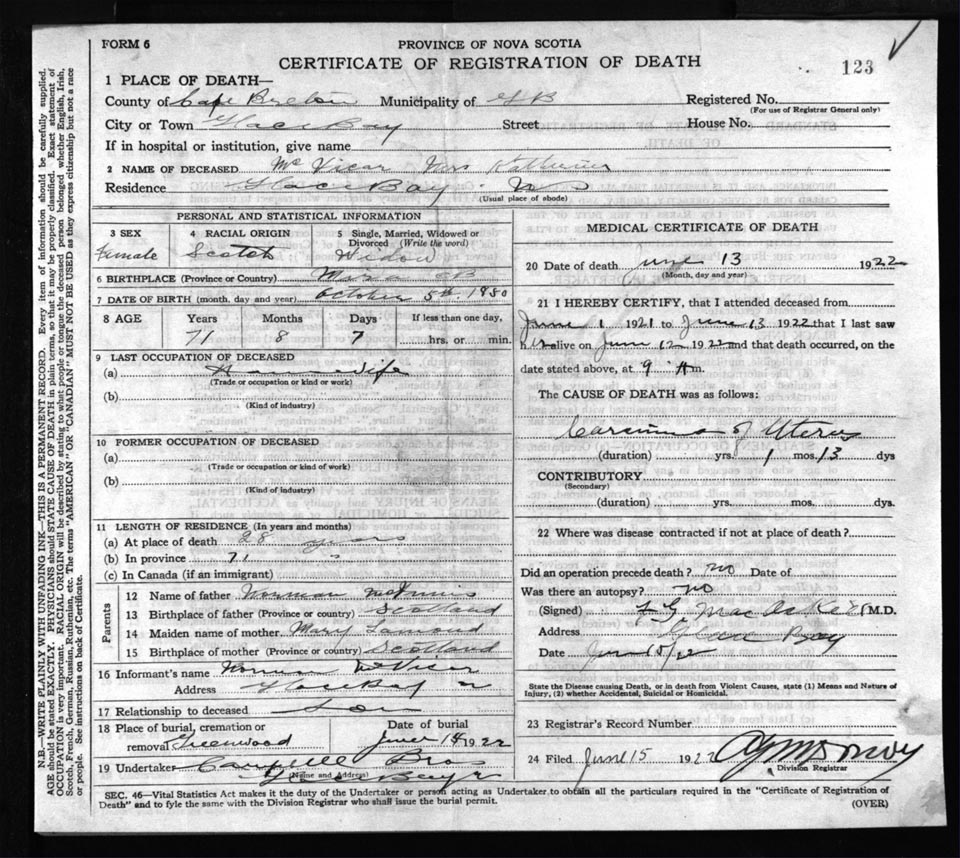 FORM 6
PROVINCE OF NOVA SCOTIA
CERTIFICATE OF REGISTRATION OF DEATH
123
1 PLACE OF DEATH—
County of Cape Breton Municipality of GB Registered No.
(For use of Registrar General only)
City or Town Glace Bay Street House No.
If in hospital or institution, give name
2 NAME OF DECEASED McVicar Mrs Katherine
Residence Glace Bay NS
(Usual place of abode)
PERSONAL AND STATISTICAL INFORMATION
3 SEX
Female
4 RACIAL ORIGIN
Scotch
5 Single, Married, Widowed or Divorced (Write the word)
Widow
6 BIRTHPLACE (Province or Country) Mira CB
7 DATE OF BIRTH (month, day and year) October 5th. 1850
8 AGE Years Months Days If less than one day,
71 8 7 hrs. or min.
9 LAST OCCUPATION OF DECEASED
(a) Housewife
(Trade or occupation or kind or work)
(b)
(Kind of industry)
10 FORMER OCCUPATION OF DECEASED
(a)
(Trade or occupation or kind of work)
(b)
(Kind of industry)
11 LENGTH OF RESIDENCE (In years and months)
(a) At place of death 28 years
(b) In province 71 "
(c) In Canada (if an immigrant)
Parents
12 Name of father Norman McInnis
13 Birthplace of father (Province or country) Scotland
14 Maiden name of mother Mary Lamond
15 Birthplace of mother (Province or country) Scotland
16 Informant's name Norman McVicar
Address Glace Bay
17 Relationship to deceased Son
18 Place of burial, cremation or removal Greenwood
Date of burial
June 14 1922
19 Undertaker Campbell Bros
(Name and Address)
Glace Bay
MEDICAL CERTIFICATE OF DEATH
20 Date of death June 13 1922
(Month, day and year)
21 I HEREBY CERTIFY, that I attended deceased from
June 1 1921 to June 13 1922 that I last saw
her alive on June 12 1922 and that death occurred, on the
date stated above, at 9 A m.
The CAUSE OF DEATH was as follows:
Carcinoma of Uterus
(duration) yrs. 1 mos. 13 dys
CONTRIBUTORY
(Secondary)
(duration) yrs. mos. dys.
22 Where was disease contracted if not at place of death?
Did an operation precede death? no Date of
Was there an autopsy? no
(Signed) MacAskill M.D.
Address Glace Bay
Date June 15/22
State the Disease causing Death, or in death from Violent Causes, state (1) Means and Nature of
Injury, (2) whether Accidental, Suicidal or Homicidal.
23 Registrar's Record Number
24 Filed June 15 1922
Division Registrar
SEC. 46—Vital Statistics Act makes it the duty of the Undertaker or person acting as Undertaker to obtain all the particulars required in the "Certificate of Registration of
Death" and to fyle the same with the Division Registrar who shall issue the burial permit.
(OVER)
N.B.—WRITE PLAINLY WITH UNFADING INK—THIS IS A PERMANENT RECORD. Every item of information should be carefully supplied.
AGE should be stated EXACTLY. PHYSICIANS should STATE CAUSE OF DEATH in plain terms, so that it may be properly classified. Exact statement of
OCCUPATION is very important. RACIAL ORIGIN will be described by stating to what people or tongue the deceased person belonged whether English, Irish,
Scotch, French, German, Russian, Ruthenian, etc. The terms "AMERICAN" OR "CANADIAN" MUST NOT BE USED as they express citizenship but not a race
or people. See instructions on back of Certificate.